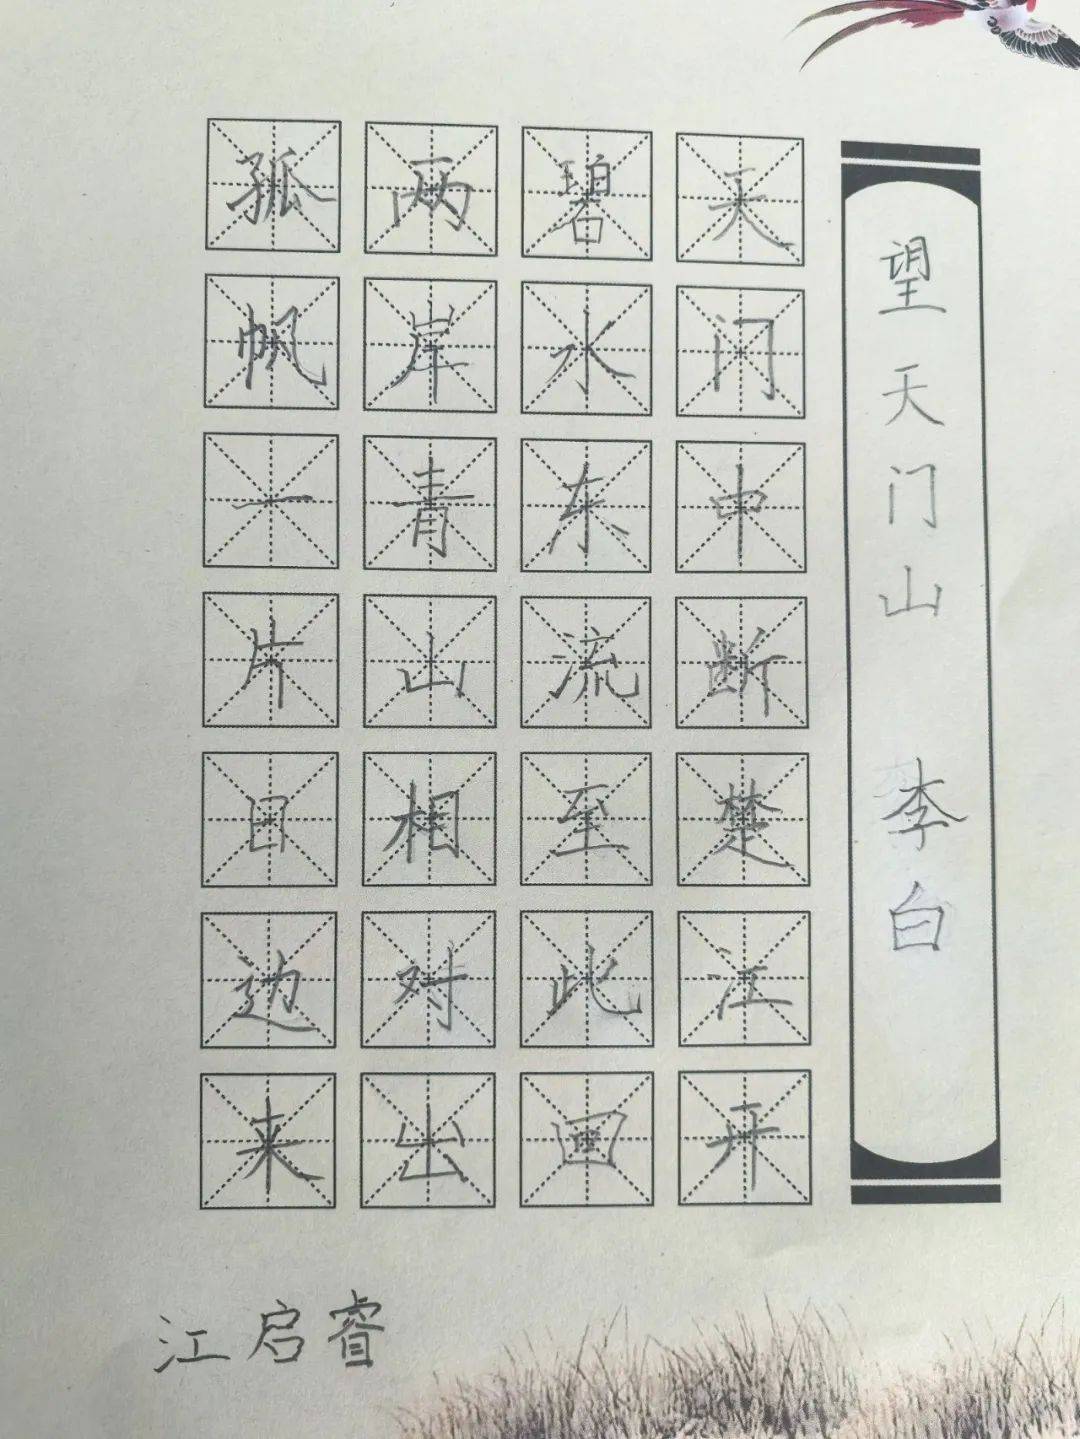 望天门山 李白
天门中断楚江开
碧水东流至此回
两岸青山相对出
孤帆一片日边来
江启睿